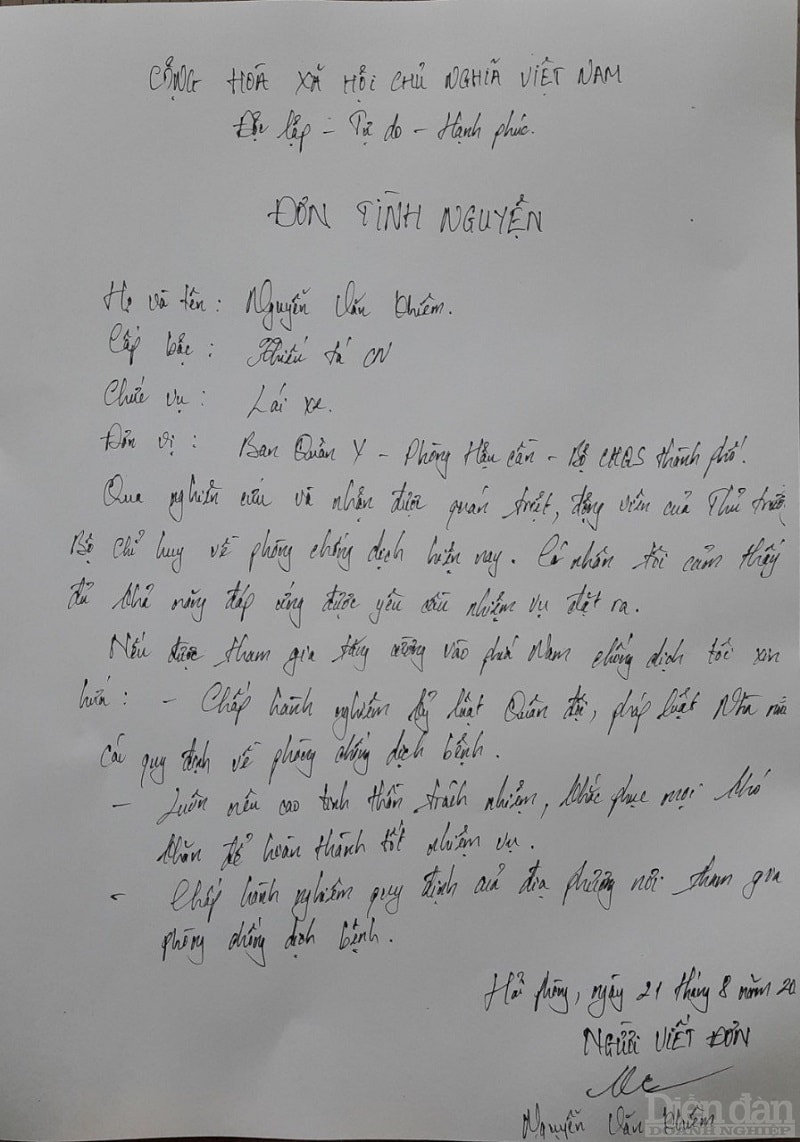 CỘNG HOÀ XÃ HỘI CHỦ NGHĨA VIỆT NAM
Độc lập - Tự do - Hạnh phúc.
ĐƠN TÌNH NGUYỆN
Họ và tên : Nguyễn Văn Khiêm.
Cấp bậc : Thiếu tá CN
Chức vụ : Lái xe.
Đơn vị : Ban Quân Y - Phòng Hậu cần - Bộ CHQS thành phố.
Qua nghiên cứu và nhận được quán triệt, động viên của Thủ trưởng
Bộ Chỉ huy về phòng chống dịch hiện nay. Cá nhân tôi cảm thấy
đủ khả năng đáp ứng được yêu cầu nhiệm vụ đặt ra.
Nếu được tham gia tăng cường vào phía Nam chống dịch tôi xin
hứa : - Chấp hành nghiêm kỷ luật Quân đội, pháp luật Nhà nước
các quy định về phòng chống dịch bệnh.
- Luôn nêu cao tinh thần trách nhiệm, khắc phục mọi khó
khăn để hoàn thành tốt nhiệm vụ.
- Chấp hành nghiêm quy định của địa phương nơi tham gia
phòng chống dịch bệnh.
Hải phòng, ngày 21 tháng 8 năm 20
NGƯỜI VIẾT ĐƠN
Nguyễn Văn Khiêm
Diễn đàn
DOANH NGHIỆP